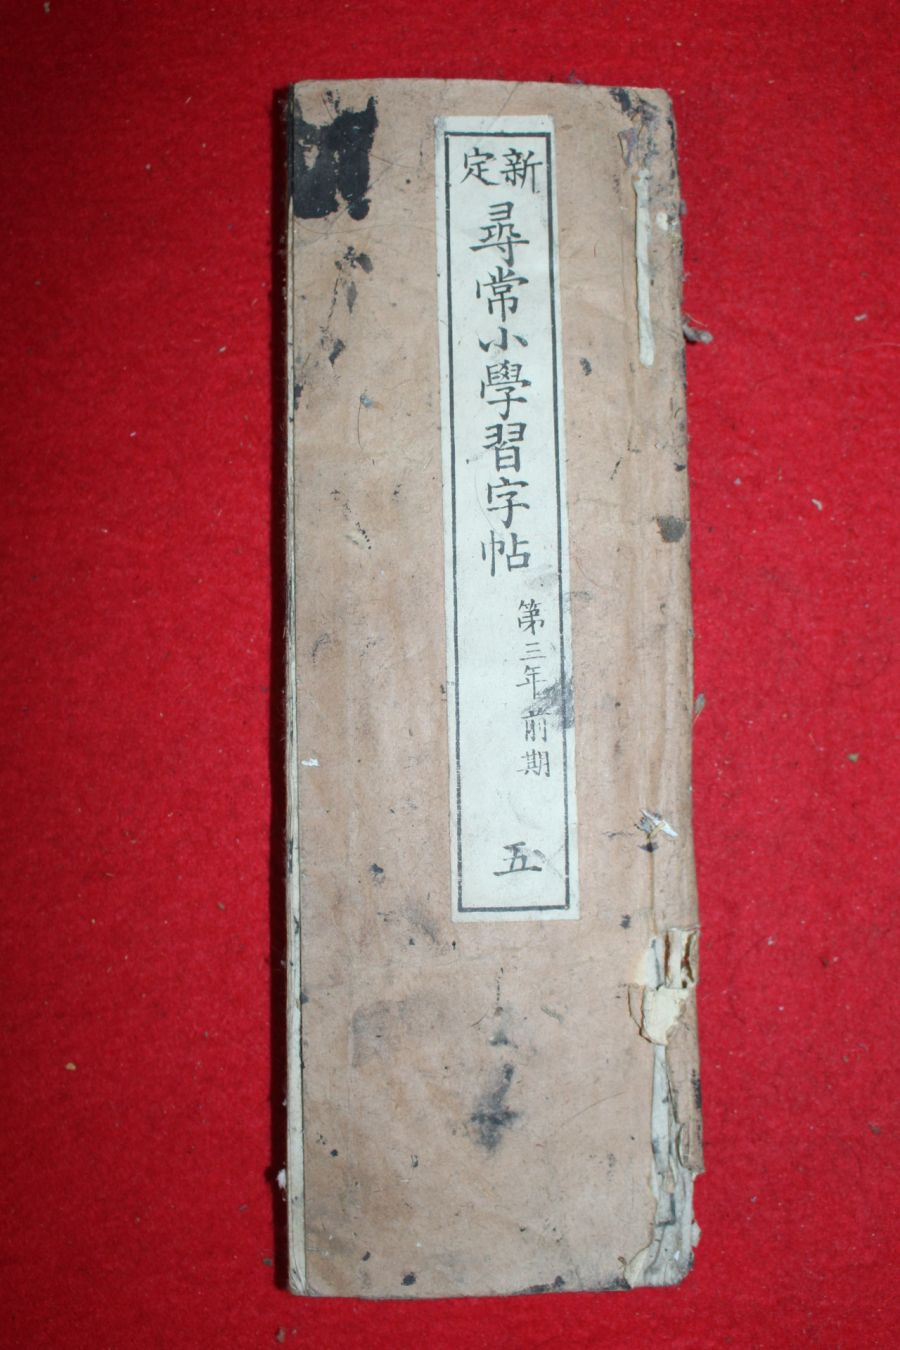 新定
尋常小學習字帖
第三年前期
五